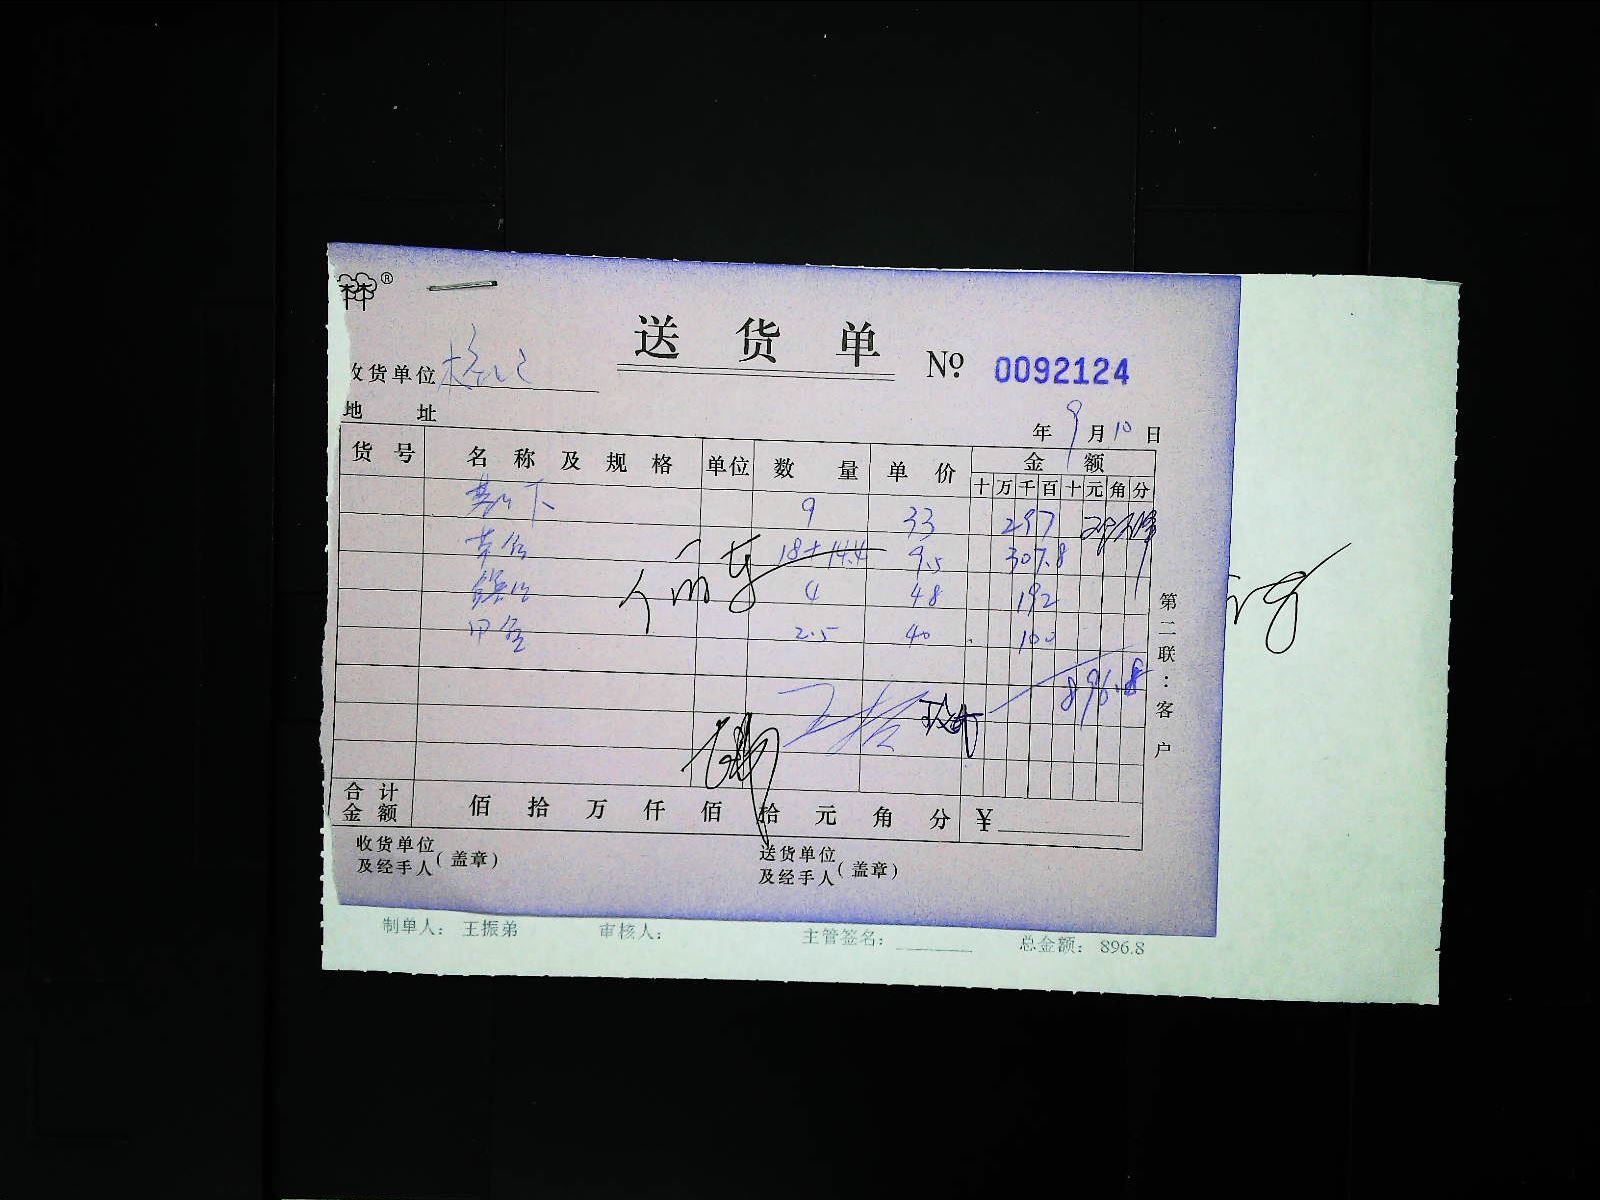 林®
送 货 单 № 0092124
收货单位
地 址
年 9 月 10 日
货 号 名 称 及 规 格 单位 数 量 单 价 金 额
十 万 千 百 十 元 角 分
9 33 297
18+14.4 9.5 307.8
4 48 192
2.5 40 100
896.8
合 计 金 额 佰 拾 万 仟 佰 拾 元 角 分 ¥
收货单位 及经手人(盖章) 送货单位 及经手人(盖章)
第二联:客户
制单人: 王振弟 审核人: 主管签名: 总金额: 896.8